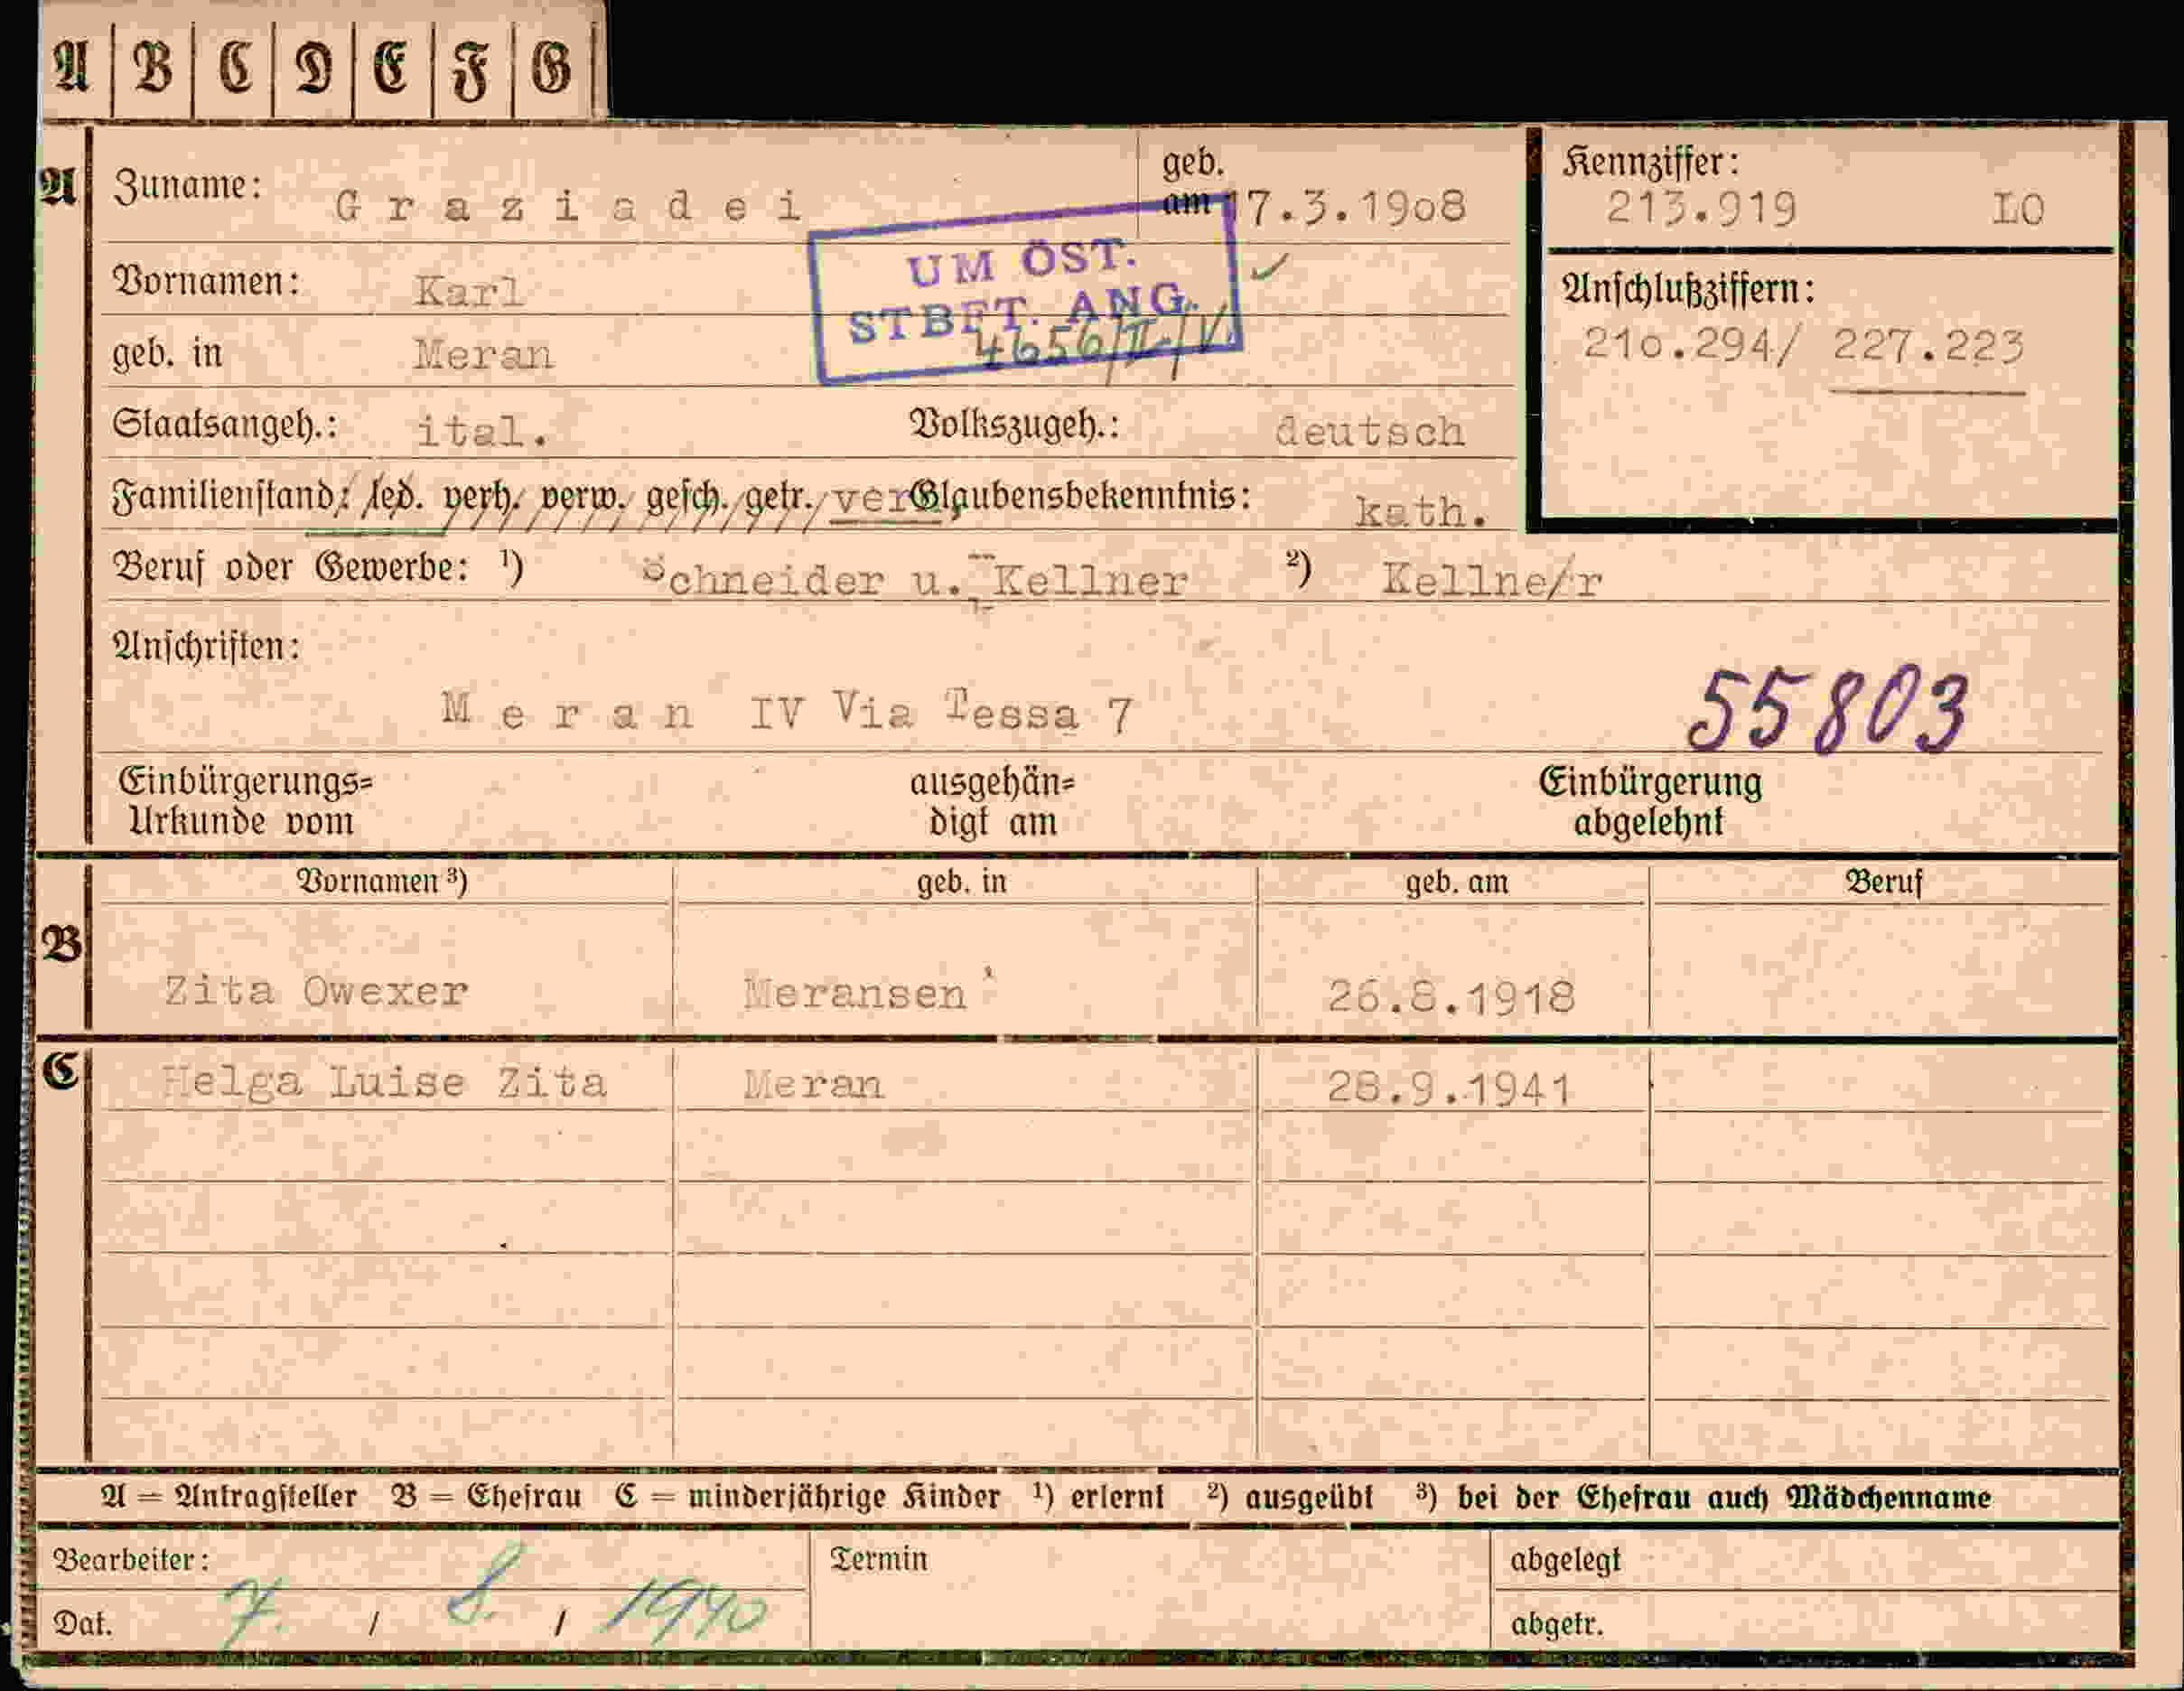 A B C D E F G
A
Zuname: Graziadei
geb. am 17.3.1908
Kennziffer:
213.919 LO
UM ÖST.
STBFT. ANG.
4656/II/V.
Vornamen: Karl
Anschlußziffern:
210.294/ 227.223
geb. in Meran
Staatsangeh.: ital. Volkszugeh.: deutsch
Familienstand: led. verh. verw. gesch. getr. verh. Glaubensbekenntnis: kath.
Beruf oder Gewerbe: 1) Schneider u. Kellner 2) Kellne/r
Anschriften:
Meran IV Via Tessa 7
55803
Einbürgerungs= ausgehän= Einbürgerung
Urkunde vom digt am abgelehnt
B
Vornamen 3) geb. in geb. am Beruf
Zita Owexer Meransen 26.8.1918
C
Helga Luise Zita Meran 28.9.1941
A = Antragsteller B = Ehefrau C = minderjährige Kinder 1) erlernt 2) ausgeübt 3) bei der Ehefrau auch Mädchenname
Bearbeiter: Termin abgelegt
Dat. 7. / 8. / 1940 abgetr.